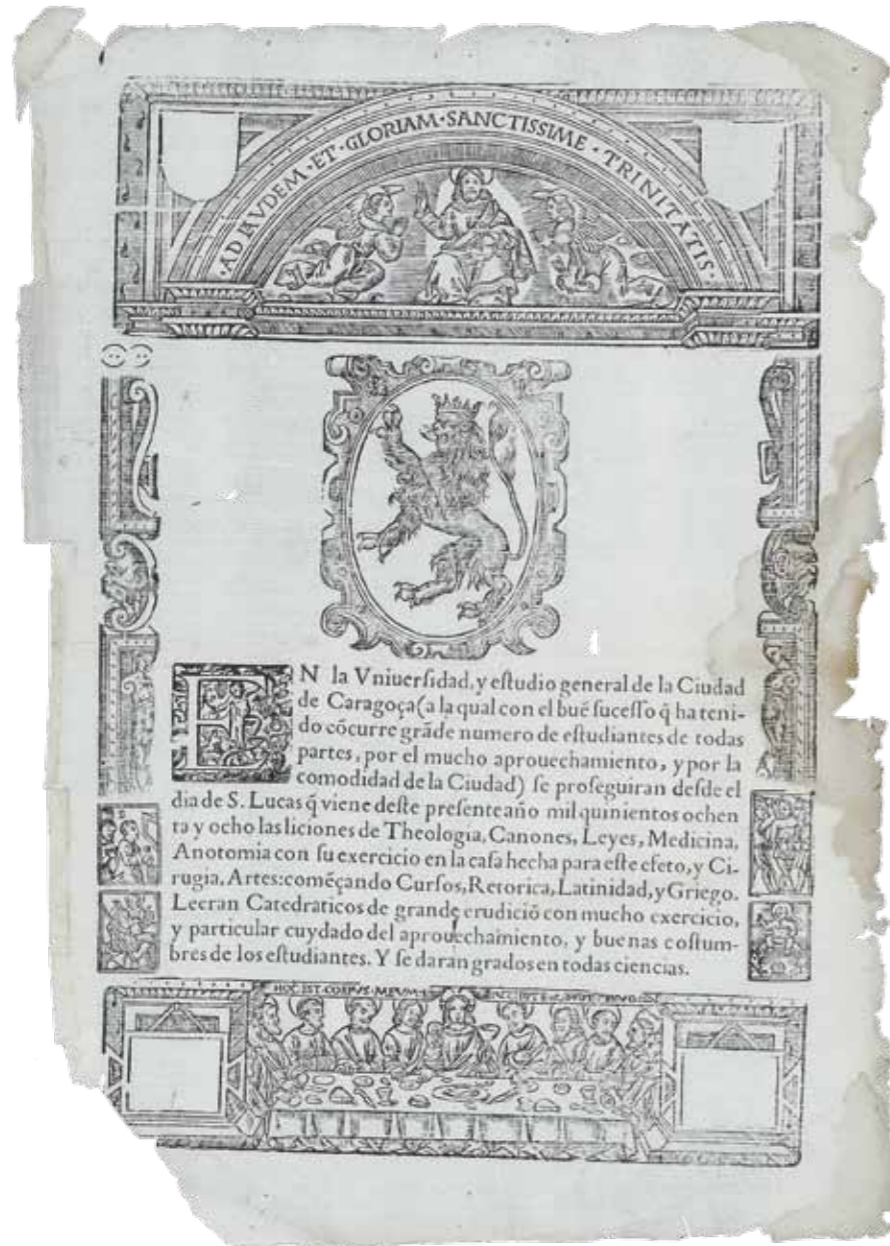 ·AD LAVDEM·ET·GLORIAM·SANCTISSIME·TRINITATIS·
EN la Vniuerſidad, y eſtudio general de la Ciudad
de Caragoça (a la qual con el bué ſuceſſo q̃ ha teni-
do cõcurre grãde numero de eſtudiantes de todas
partes, por el mucho aprouechamiento, y por la
comodidad de la Ciudad) ſe proſeguiran deſde el
dia de S. Lucas q̃ viene deſte preſente año mil quinientos ochen
ta y ocho las liciones de Theologia, Canones, Leyes, Medicina,
Anotomia con ſu exercicio en la caſa hecha para eſte efeto, y Ci-
rugia, Artes: coméçando Curſos, Retorica, Latinidad, y Griego.
Leeran Catedraticos de grande erudiciõ con mucho exercicio,
y particular cuydado del aprouechamiento, y buenas coſtum-
bres de los eſtudiantes. Y ſe daran grados en todas ciencias.
HOC EST CORPVS MEVM